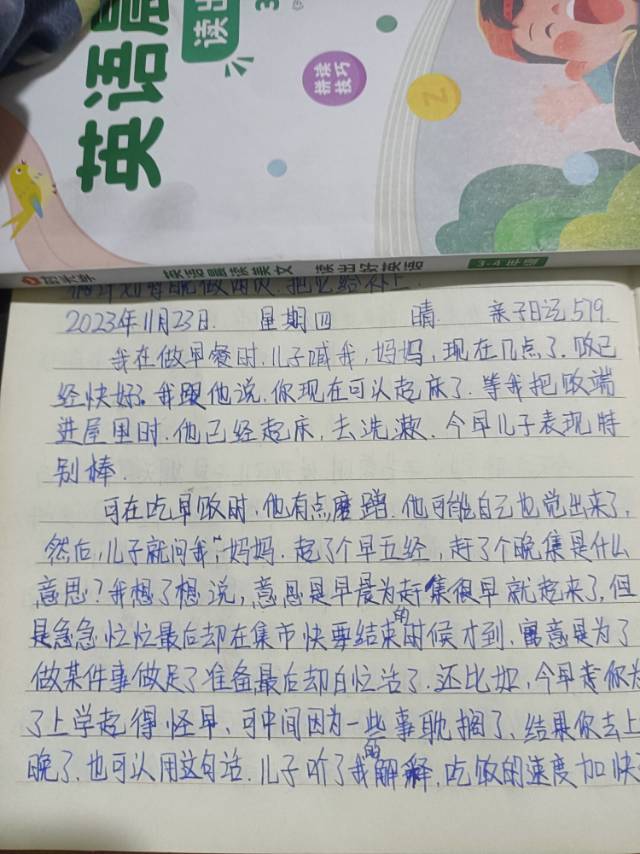 英语晨
读出
3
拼读
技巧
Z
时光学
英语晨读美文 读出好英语
3-4年级
2023年11月23日. 星期四 晴 亲子日记519.
我在做早餐时,儿子喊我,妈妈,现在几点了.饭已
经快好了.我跟他说.你现在可以起床了.等我把饭端
进屋里时.他已经起床,去洗漱.今早儿子表现特
别棒.
可在吃早饭时,他有点磨蹭.他可能自己也觉出来了,
然后,儿子就问我,妈妈.起了个早五经,赶了个晚集是什么
意思?我想了想说,意思是早晨为赶集很早就起来了,但
是急急忙忙最后却在集市快要结束的时候才到.寓意是为了
做某件事做足了准备最后却白忙活了.还比如,今早表你为
了上学起得怪早,可中间因为一些事耽搁了,结果你去上
晚了.也可以用这句话.儿子听了我的解释,吃饭的速度加快